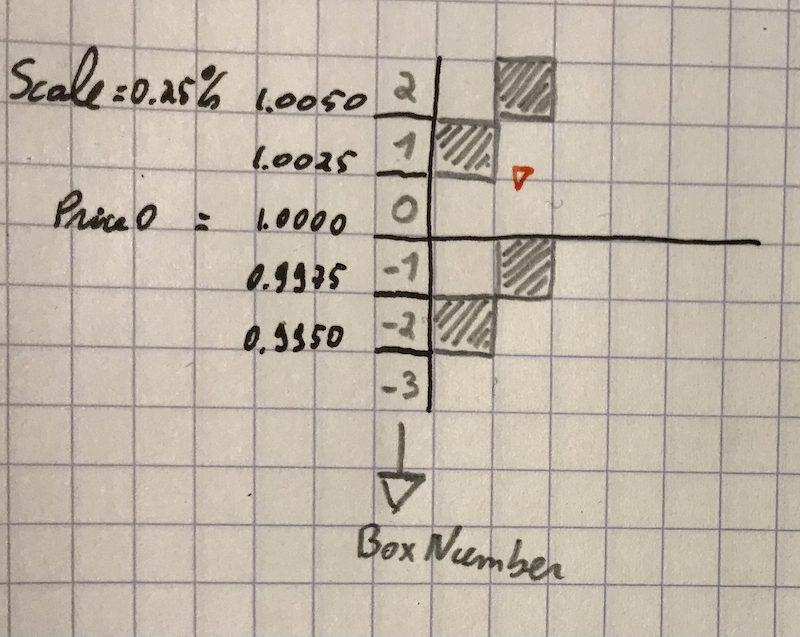 Scale = 0.25% 1.0050 2
1.0025 1
Price 0 = 1.0000 0
0.9975 -1
0.9950 -2
-3
Box Number